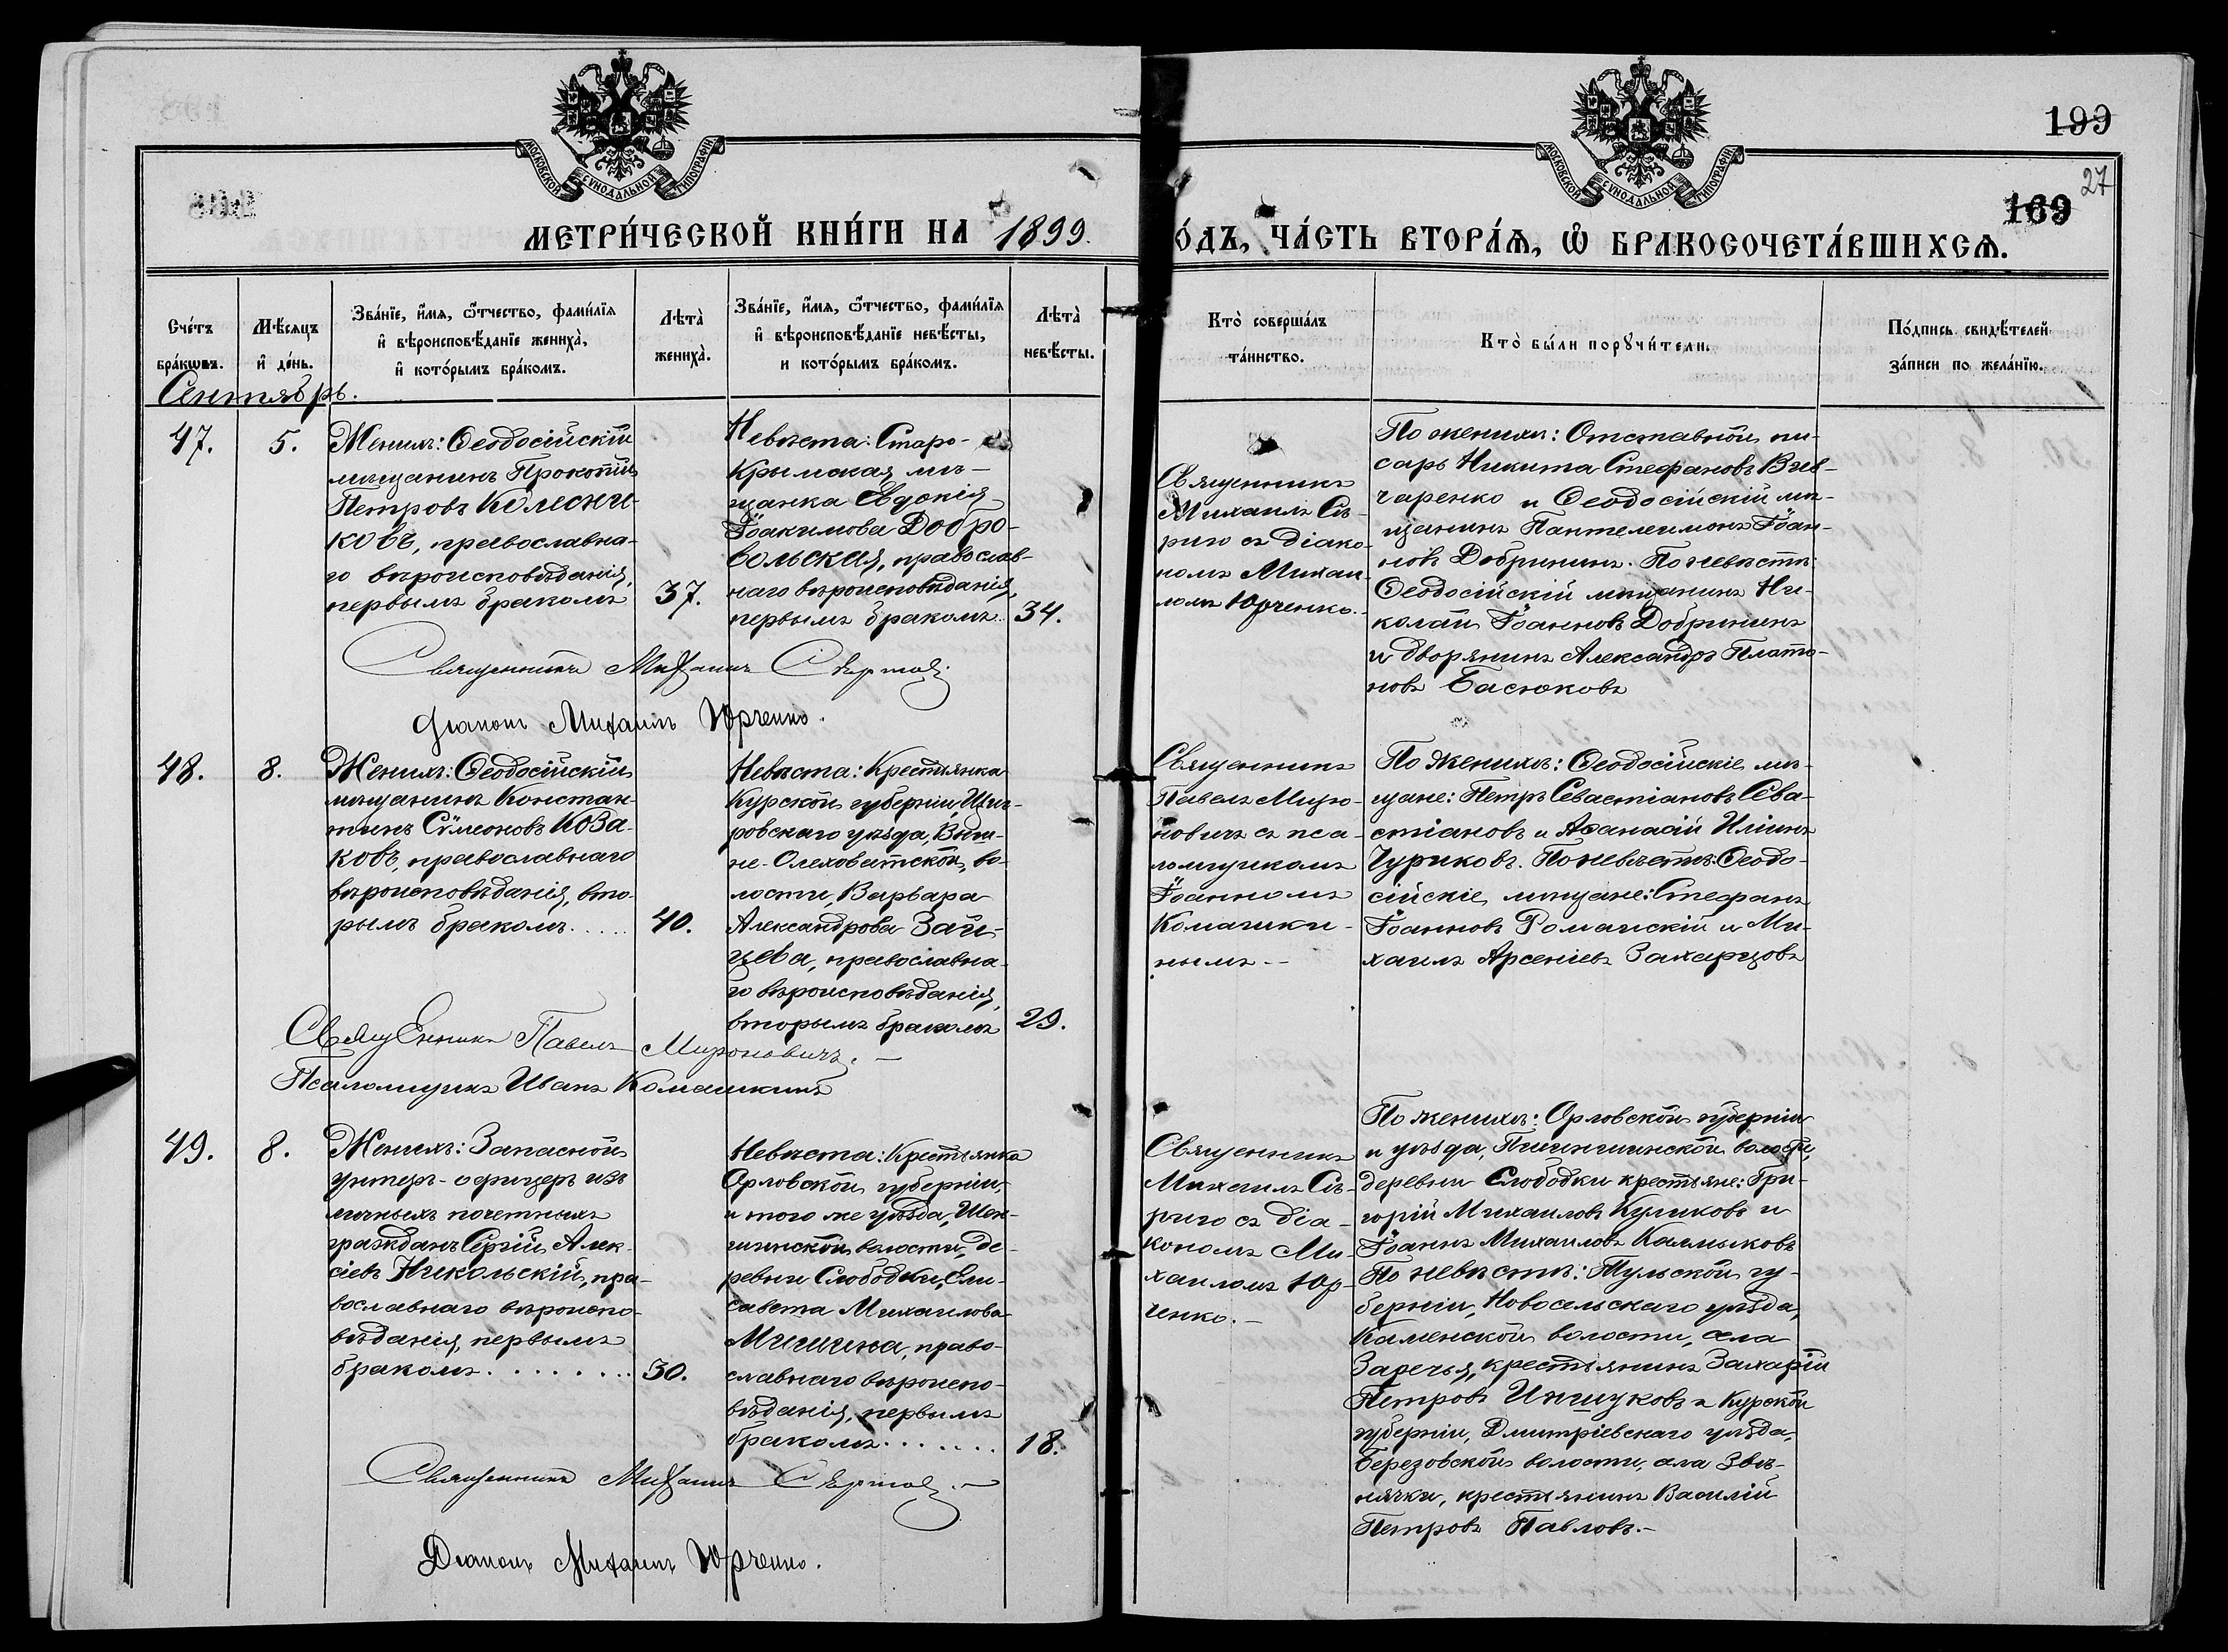 МОСКОВСКОЙ СѴНОДАЛЬНОЙ ТИПОГРАФІИ
МОСКОВСКОЙ СѴНОДАЛЬНОЙ ТИПОГРАФІИ
199
27
169
МЕТРИ́ЧЕСКОЙ КНИ́ГИ НА 1899.
О́ДЪ, ЧА́СТЬ ВТОРА́Ѧ, Ѽ БРАКОСОЧЕТА́ВШИХСѦ.
Сче́тъ
бра́кѡвъ.
Мѣ́сяцъ
и҆ де́нь.
Зва́нїе, и҆́мя, ѻ҆́тчество, фами́лїя
и҆ вѣроисповѣ́данїе жениха̀,
и҆ кото́рымъ бра́комъ.
Лѣта̀
жениха̀.
Зва́нїе, и҆́мя, ѻ҆́тчество, фами́лїя
и҆ вѣроисповѣ́данїе невѣ́сты,
и кото́рымъ бра́комъ.
Лѣта̀
невѣ́сты.
Кто̀ соверша́лъ
та́инство.
Кто̀ бы́ли порꙋчи́тели.
По́дпись свидѣ́телей
за́писи по жела́нїю.
Сентябрь.
47.
5.
Женихъ: Ѳеодосійскій
мѣщанинъ Прокопій
Петровъ Колесни-
ковъ, православна-
го вѣроисповѣданія,
первымъ бракомъ
37.
Невѣста: Старо-
Крымская мѣ-
щанка Евдокія
Іоакимова Добро-
вольская, православ-
наго вѣроисповѣданія,
первымъ бракомъ.
34.
Священникъ
Михаилъ Сѣ-
рию съ діако-
номъ Михаи-
ломъ Юрченко.-
По женихѣ: Отставной пи-
сарь Никита Стефановъ
чаренко и Ѳеодосійскій мѣ-
щанинъ Пантелеимонъ Іоан-
новъ Добрининъ. По невѣстѣ:
Ѳеодосійскій мѣщанинъ Ни-
колай Іоанновъ Добрининъ
и дворянинъ Александръ Плато-
новъ Басюковъ
Священникъ Михаилъ
Діаконъ Михаилъ Юрченко.
48.
8.
Женихъ: Ѳеодосійскій
мѣщанинъ Констан-
тинъ Сѷмеоновъ Коза-
ковъ, православнаго
вѣроисповѣданія, вто-
рымъ бракомъ.....
40.
Невѣста: Крестьянка
Курской губерніи, Щиг-
ровскаго уѣзда, Выш-
не-Ольховатской, во-
лости, Варвара
Александрова Зай-
цева, православна-
го вѣроисповѣданія,
вторымъ бракомъ
29.
Священникъ
Павелъ Миро-
новичъ съ пса-
ломщикомъ
Іоанномъ
Комашки-
нымъ.-
По женихѣ: Ѳеодосійскіе мѣ-
щане: Петръ Севастіановъ Сева-
стіановъ и Аѳанасій Иліинъ
Чуриковъ. По невѣстѣ: Ѳеодо-
сійскіе мѣщане: Стефанъ
Іоанновъ Романскій и Ми-
хаилъ Арсеніевъ Захарцовъ
Священникъ Павелъ Мироновичъ.-
Псаломщикъ Иванъ Комашкинъ
49.
8.
Женихъ: Запасной
унтеръ-офицеръ изъ
личныхъ почетныхъ
гражданъ Сергій Алек-
сіевъ Никольскій, пра-
вославнаго вѣроиспо-
вѣданія, первымъ
бракомъ.......
30.
Невѣста: Крестьянка
Орловской губерніи,
и того же уѣзда,
волости, де-
ревни Слободки, Ели-
савета Михаилова
Мишина, право-
славнаго вѣроиспо-
вѣданія, первымъ
бракомъ.......
18.
Священникъ
Михаилъ Сѣ-
рию съ діа-
кономъ Ми-
хаиломъ Юр-
ченко.-
По женихѣ: Орловской губерніи
и уѣзда, волости,
деревни Слободки крестьяне: Гри-
горій Михаиловъ Куликовъ и
Іоаннъ Михаиловъ Калмыковъ
По невѣстѣ: Тульской гу-
берніи, Новосельскаго уѣзда,
Каменской волости, села
Заречья, крестьянинъ Захарій
Петровъ и Курской
губерніи, Дмитріевскаго уѣзда,
Березовской волости, села Звѣ-
нячки, крестьянинъ Василій
Петровъ Павловъ.-
Священникъ Михаилъ
Діаконъ Михаилъ Юрченко.